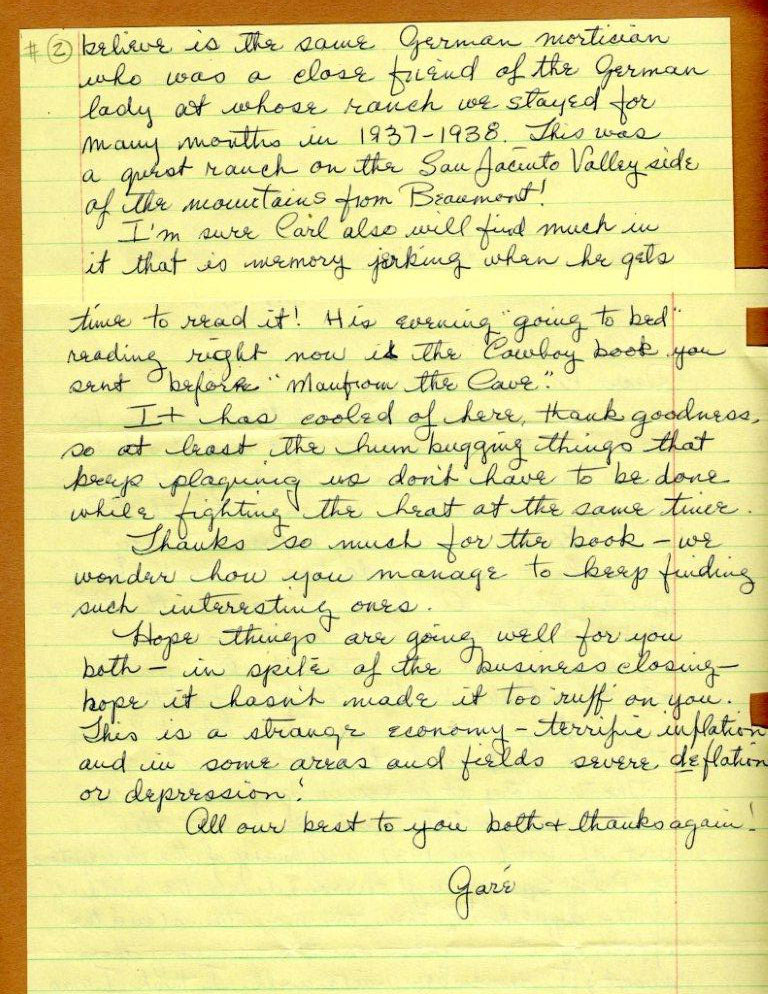 # ② believe is the same German mortician
who was a close friend of the German
lady at whose ranch we stayed for
many months in 1937-1938. This was
a guest ranch on the San Jacinto Valley side
of the mountains from Beaumont!
I'm sure Carl also will find much in
it that is memory jerking when he gets
time to read it! His evening "going to bed"
reading right now is the Cowboy book you
sent before "Manfrom the Cave".
It has cooled of here, thank goodness,
so at least the hum bugging things that
keep plaguing us don't have to be done
while fighting the heat at the same time.
Thanks so much for the book - we
wonder how you manage to keep finding
such interesting ones.
Hope things are going well for you
both - in spite of the business closing -
hope it hasn't made it too ruff on you.
This is a strange economy - terrific inflation
and in some areas and fields severe deflation
or depression!
All our best to you both & thanks again!
Garé